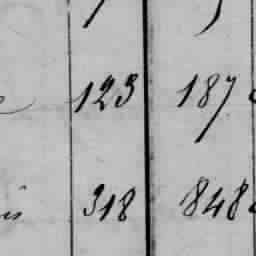 123 187
318 848